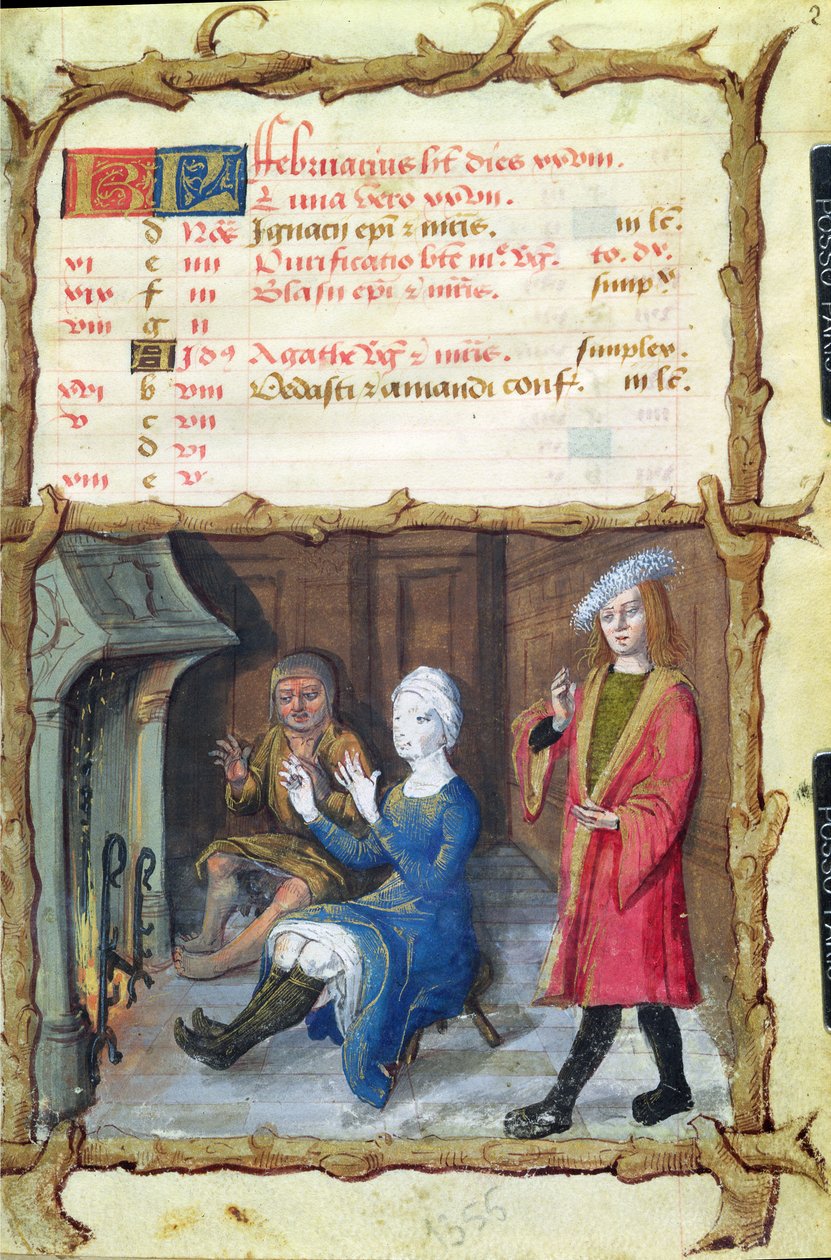 2
KL Februarius ht dies xxviii.
Luna vero xxvii.
d Noē Ignacii epi ⁊ mris. iii lc.
vi e iiii Purificatio bte me vg. to. du.
xiv f iii Blasii epi ⁊ mris. simp
viii g ii
A Idꝰ Agathe vg ⁊ mris. simplex.
xvi b viii Vedasti ⁊ amandi conf. iii lc.
v c vii
d vi
xiii e v
1355
POSSO PARIS
POSSO PARIS